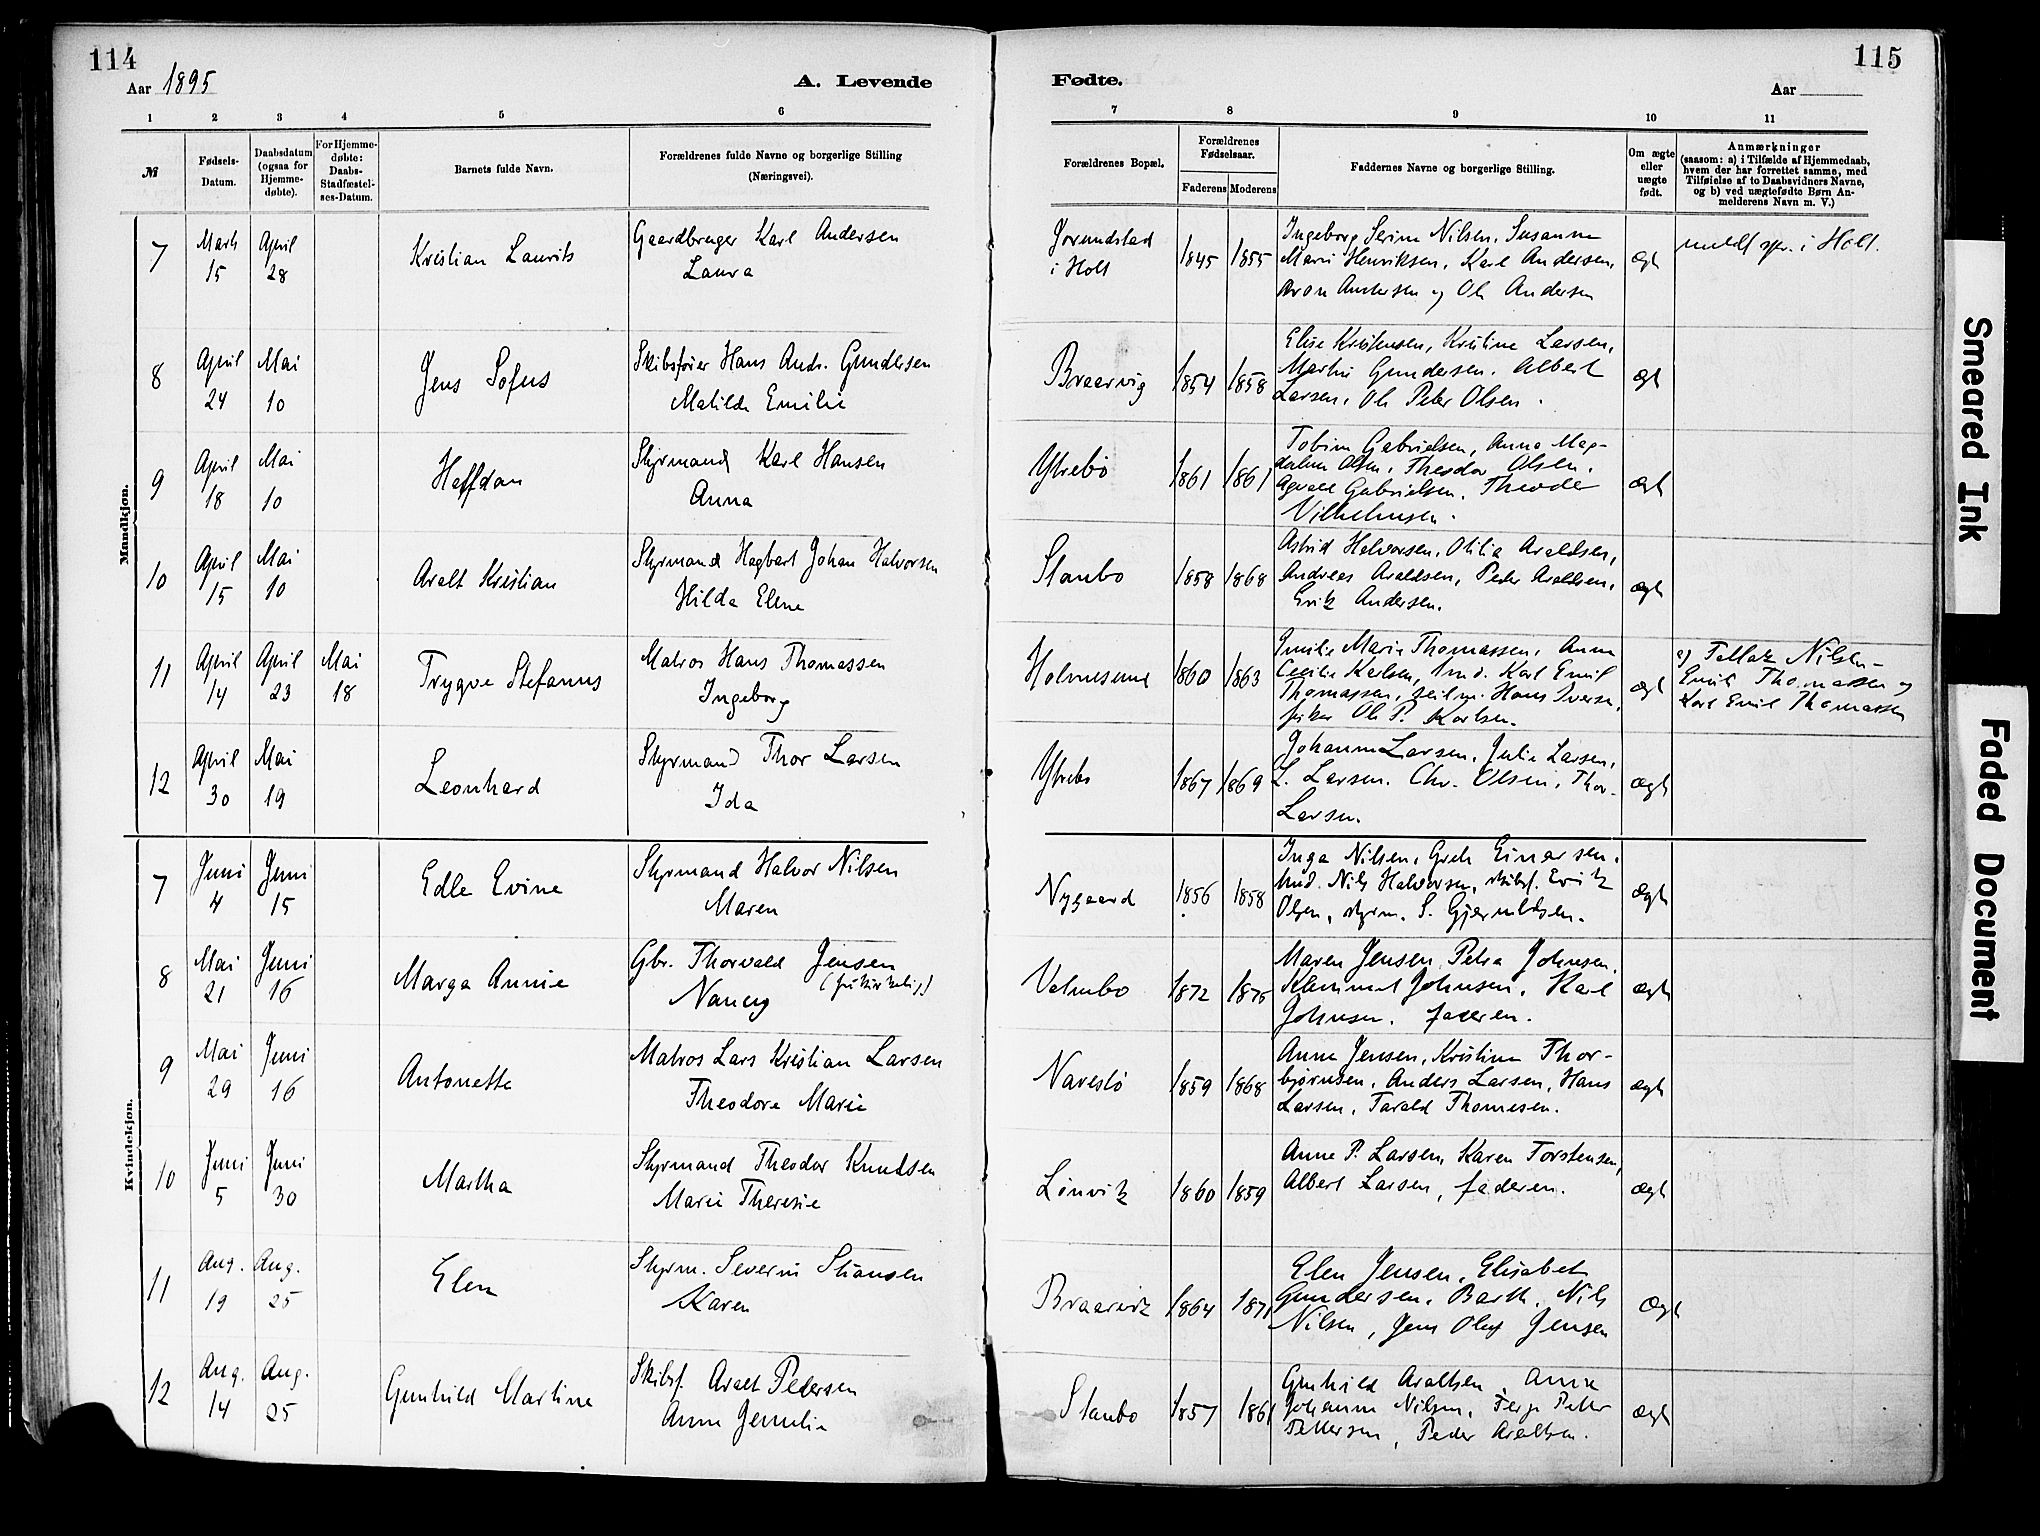 114
Aar 1895
A. Levende
1 2 3 4 5 6
№
Fødsels-Datum.
Daabsdatum (ogsaa for Hjemme-døbte).
For Hjemme-døbte: Daabs-Stadfæstel-ses-Datum.
Barnets fulde Navn.
Forældrenes fulde Navne og borgerlige Stilling
(Næringsvei).
Mandkjøn.
7 Marts 15 April 28 Kristian Laurits Gaardbruger Karl Andersen
Laura
8 April 24 Mai 10 Jens Sofus Skibsfører Hans Andr. Gundersen
Matilde Emilie
9 April 18 Mai 10 Halfdan Styrmand Karl Hansen
Anna
10 April 15 Mai 10 Aralt Kristian Styrmand Hagbart Johan Halvorsen
Hilda Elene
11 April 14 April 23 Mai 18 Trygve Stefanus Matros Hans Thomassen
Ingeborg
12 April 30 Mai 19 Leonhard Styrmand Thor Larsen
Ida
Kvindekjøn.
7 Juni 4 Juni 15 Edle Evine Styrmand Halvor Nilsen
Maren
8 Mai 21 Juni 16 Marga Annie Gbr. Thorvald Jensen
(frikirkelig) Nancy
9 Mai 29 Juni 16 Antonette Matros Lars Kristian Larsen
Theodore Marie
10 Juni 5 Juni 30 Martha Styrmand Theodor Knudsen
Marie Theresie
11 Aug. 19 Aug. 25 Elen Styrm. Severin Stiansen
Karen
12 Aug. 14 Aug. 25 Gunhild Martine Skibsf. Aralt Pedersen
Anne Jemilie
115
Fødte.
Aar
7 8 9 10 11
Forældrenes Bopæl.
Forældrenes Fødselsaar.
Faderens Moderens
Faddernes Navne og borgerlige Stilling.
Om ægte eller uægte født.
Anmærkninger
(saasom: a) i Tilfælde af Hjemmedaab,
hvem der har forrettet samme, med
Tilføielse af to Daabsvidners Navne,
og b) ved uægtefødte Børn An-
melderens Navn m. V.)
Jorundstad i Holt 1845 1855 Ingeborg Serine Nilsen, Susanne
Marie Henriksen, Karl Andersen,
Aron Andersen og Ole Andersen
ægt meldt spr. i Holt.
Braarvig 1854 1858 Elise Kristensen, Kristine Larsen,
Martin Gundersen, Albert
Larsen, Ole Peter Olsen.
ægt
Ytrebø 1861 1861 Tobine Gabrielsen, Anna Mag-
dalene Olsen, Theodor Olsen,
Gabrielsen, Theodor
Vilhelmsen.
ægt
Staubo 1858 1868 Astrid Halvorsen, Otilie Araldsen,
Andreas Araldsen, Peder Araldsen,
Erik Andersen.
ægt
Holmesund 1860 1863 Emilie Marie Thomassen, Anne
Cecilie Karlsen, Karl Emil
Thomassen, Hans Iversen,
fisker Ole P. Karlsen.
ægt
a) Tellak Nilsen-
Emil Thomassen og
Karl Emil Thomassen
Ytrebø 1867 1869 Johanne Larsen, Julie Larsen,
L. Larsen, Chr. Olsen, Thor
Larsen.
ægt
Nygaard 1856 1858 Inga Nilsen, Grete Einarsen,
Nils Halvorsen, skibsf. Erik
Olsen, styrm. S. Gjeruldsen.
ægt
Valmbo 1872 1875 Maren Jensen, Petra Johnsen,
Klemmet Johnsen, Karl
Johnsen, faderen.
ægt
Narestø 1859 1868 Anne Jensen, Kristine Thor-
bjørnsen, Anders Larsen, Hans
Larsen, Tarald Thomesen.
ægt
Linvik 1860 1859 Anne P. Larsen, Karen Torstensen,
Albert Larsen, faderen.
ægt
Braarvik 1864 1871 Elen Jensen, Elisabet
Gundersen, Barth. Nils
Nilsen, Jens Oluf Jensen
ægt
Staubo 1857 1861 Gunhild Araltsen, Anne
Johanne Nilsen, Terje Petter
Pettersen, Peder Araltsen.
ægt
Smeared Ink
Faded Document